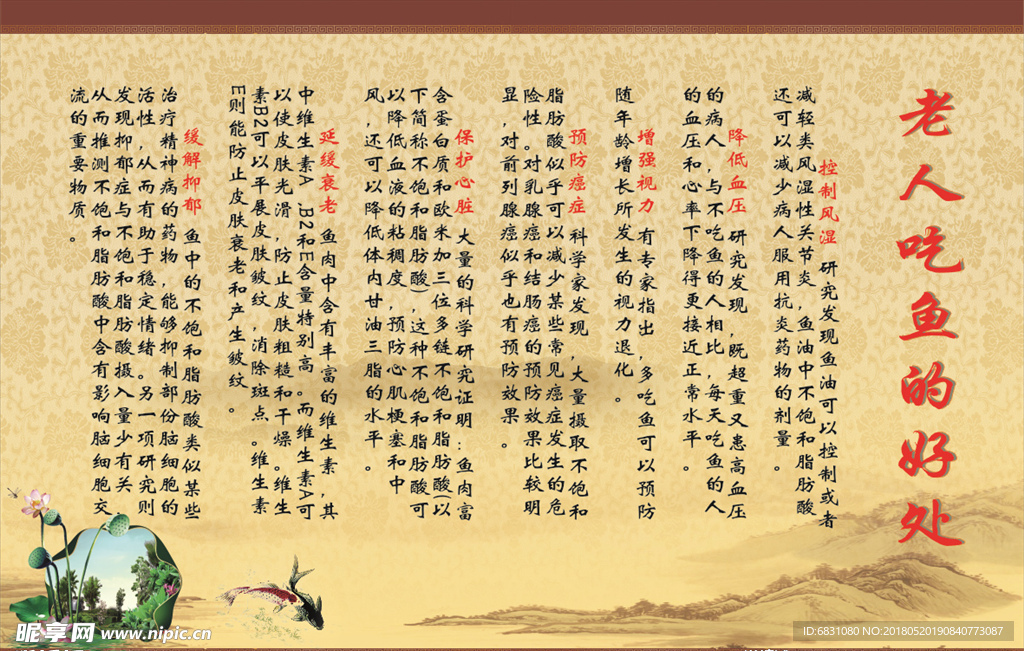 老人吃鱼的好处
控制风湿 研究发现鱼油可以控制或者
减轻类风湿性关节炎,鱼油中不饱和脂肪酸
还可以减少病人服用抗炎药物的剂量。
降低血压 研究发现,既超重又患高血压
的病人,与不吃鱼的人相比,每天吃鱼的人
的血压和心率下降得更接近正常水平。
增强视力 有专家指出,多吃鱼可以预防
随年龄增长所发生的视力退化。
预防癌症 科学家发现,大量摄取不饱和
脂肪酸似乎可以减少某些常见癌症发生的危
险性。对乳腺癌和结肠癌的预防效果比较明
显,对前列腺癌似乎也有预防效果。
保护心脏 大量的科学研究证明:鱼肉富
含蛋白质和欧米加三位多链不饱和脂肪酸(以
下简称不饱和脂肪酸),这种不饱和脂肪酸可
以降低血液的粘稠度,预防心肌梗塞和中
风,还可以降低体内甘油三脂的水平。
延缓衰老 鱼肉中含有丰富的维生素,其
中维生素A、B2和E含量特别高。而维生素A可
以使皮肤光滑,防止皮肤粗糙和干燥。维生
素B2可以平展皮肤皱纹,消除斑点。维生素
E则能防止皮肤衰老和产生皱纹。
缓解抑郁 鱼中的不饱和脂肪酸类似某些
治疗精神病的药物,能够抑制部份脑细胞的
活性,从而有助于稳定情绪。另一项研究则
发现抑郁症与不饱和脂肪酸摄入量少有关,
从而推测不饱和脂肪酸中含有影响脑细胞交
流的重要物质。
昵享网 www.nipic.cn
ID:6831080 NO:20180520190840773087